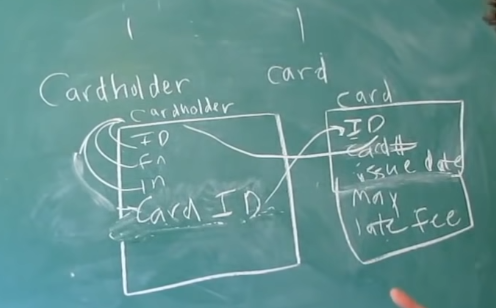 Cardholder
card
Cardholder
ID
Fn
ln
Card ID
card
ID
card#
issue date
max
late Fee